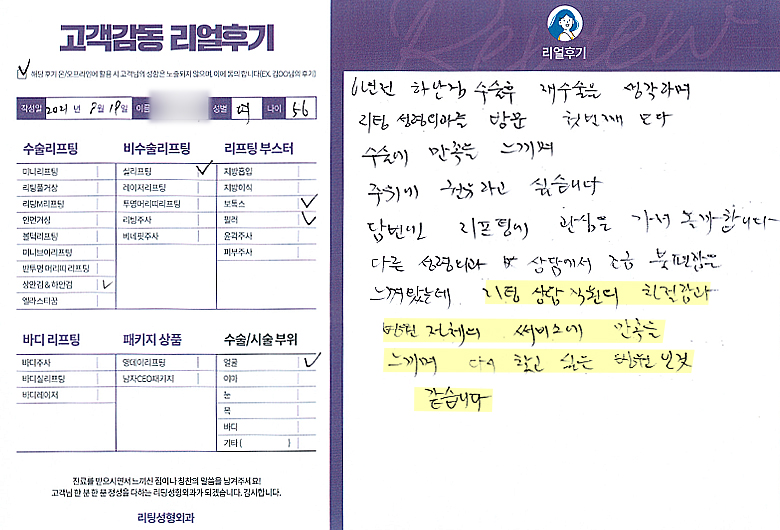 고객감동 리얼후기
해당 후기 온/오프라인에 활용 시 고객님의 성함은 노출되지 않으며, 이에 동의 합니다(EX. 김OO님의 후기)
작성일 2021년 8월 19일 이름 성별 여 나이 56
수술리프팅 비수술리프팅 리프팅 부스터
미니리프팅 실리프팅 지방흡입
리팅풀거상 레이저리프팅 지방이식
리팅M리프팅 투명머리띠리프팅 보톡스
안면거상 리팅주사 필러
볼턱리프팅 비네핏주사 윤곽주사
미니브이리프팅 피부주사
반투명 머리띠 리프팅
상안검 & 하안검
엘라스티꿈
바디 리프팅 패키지 상품 수술/시술 부위
바디주사 원데이리프팅 얼굴
바디실리프팅 남자CEO패키지 이마
바디레이저 눈
목
바디
기타 ( )
진료를 받으시면서 느끼신 점이나 칭찬의 말씀을 남겨주세요!
고객님 한 분 한 분 정성을 다하는 리팅성형외과가 되겠습니다. 감사합니다.
리팅성형외과
Review
리얼후기
6년전 하안검 수술후 재수술을 생각하며
리팅 성형외과를 방문 첫번째 보다
수술에 만족을 느끼며
주위에 권유하고 싶습니다
답변에 리프팅에 관심을 가져 볼까 합니다
다른 성형외과 상담에서 조금 불편함을
느껴었는데 리팅 상담 직원의 친절감과
병원 전체의 써비스에 만족을
느끼며 다시 찾고 싶은 병원 인것
같습니다